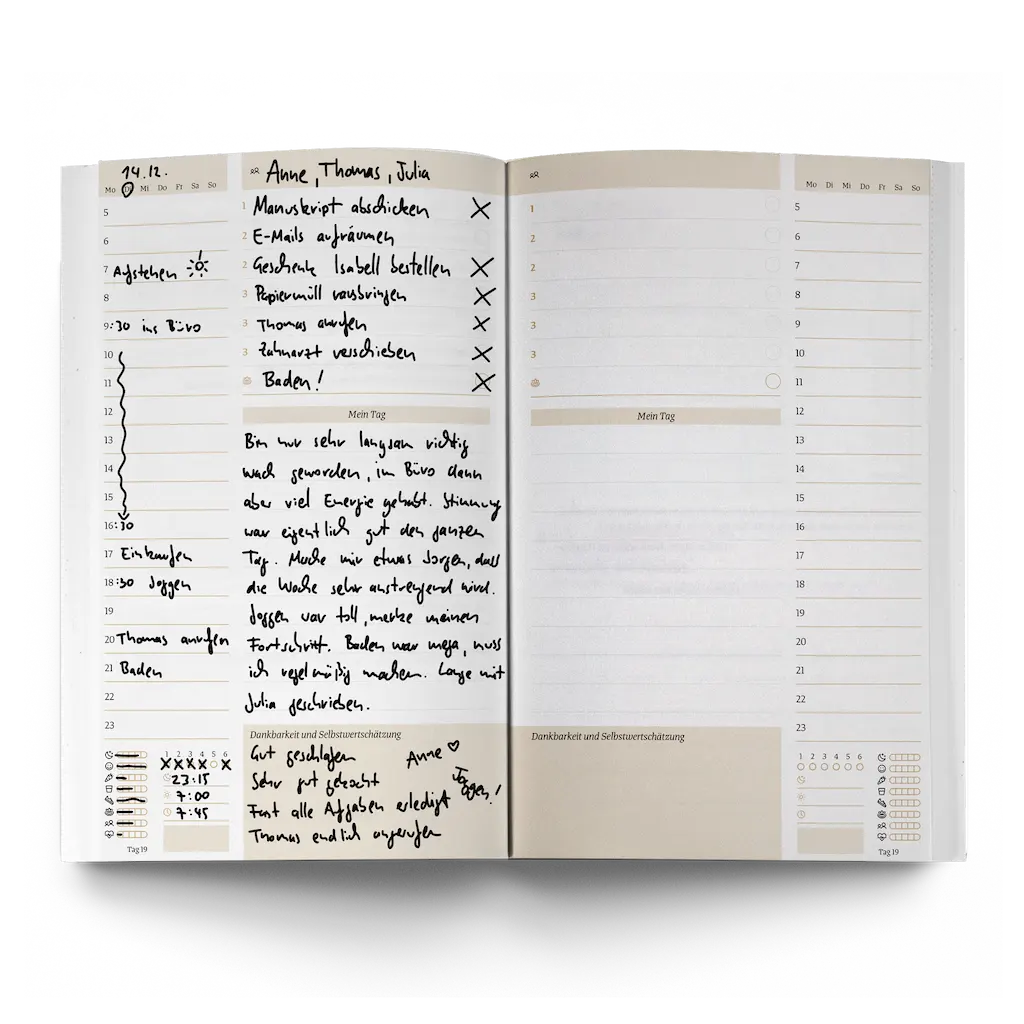 14.12.
Mo Di Mi Do Fr Sa So
5
6
7 Aufstehen
8
9:30 ins Büro
10
11
12
13
14
15
16:30
17 Einkaufen
18:30 Joggen
19
20 Thomas anrufen
21 Baden
22
23
1 2 3 4 5 6
23:15
7:00
7:45
Tag 19
Anne, Thomas, Julia
1 Manuskript abschicken
2 E-Mails aufräumen
2 Geschenk Isabell bestellen
3 Papiermüll rausbringen
3 Thomas anrufen
3 Zahnarzt verschieben
Baden!
Mein Tag
Bin nur sehr langsam richtig
wach geworden, im Büro dann
aber viel Energie gehabt. Stimmung
war eigentlich gut den ganzen
Tag. Mache mir etwas Sorgen, dass
die Woche sehr anstrengend wird.
Joggen war toll, merke meinen
Fortschritt. Baden war mega, muss
ich regelmäßig machen. Lange mit
Julia geschrieben.
Dankbarkeit und Selbstwertschätzung
Gut geschlafen
Anne ♡
Sehr gut gekocht
Joggen!
Fast alle Aufgaben erledigt
Thomas endlich angerufen
1
2
2
3
3
3
Mein Tag
Dankbarkeit und Selbstwertschätzung
Mo Di Mi Do Fr Sa So
5
6
7
8
9
10
11
12
13
14
15
16
17
18
19
20
21
22
23
1 2 3 4 5 6
Tag 19